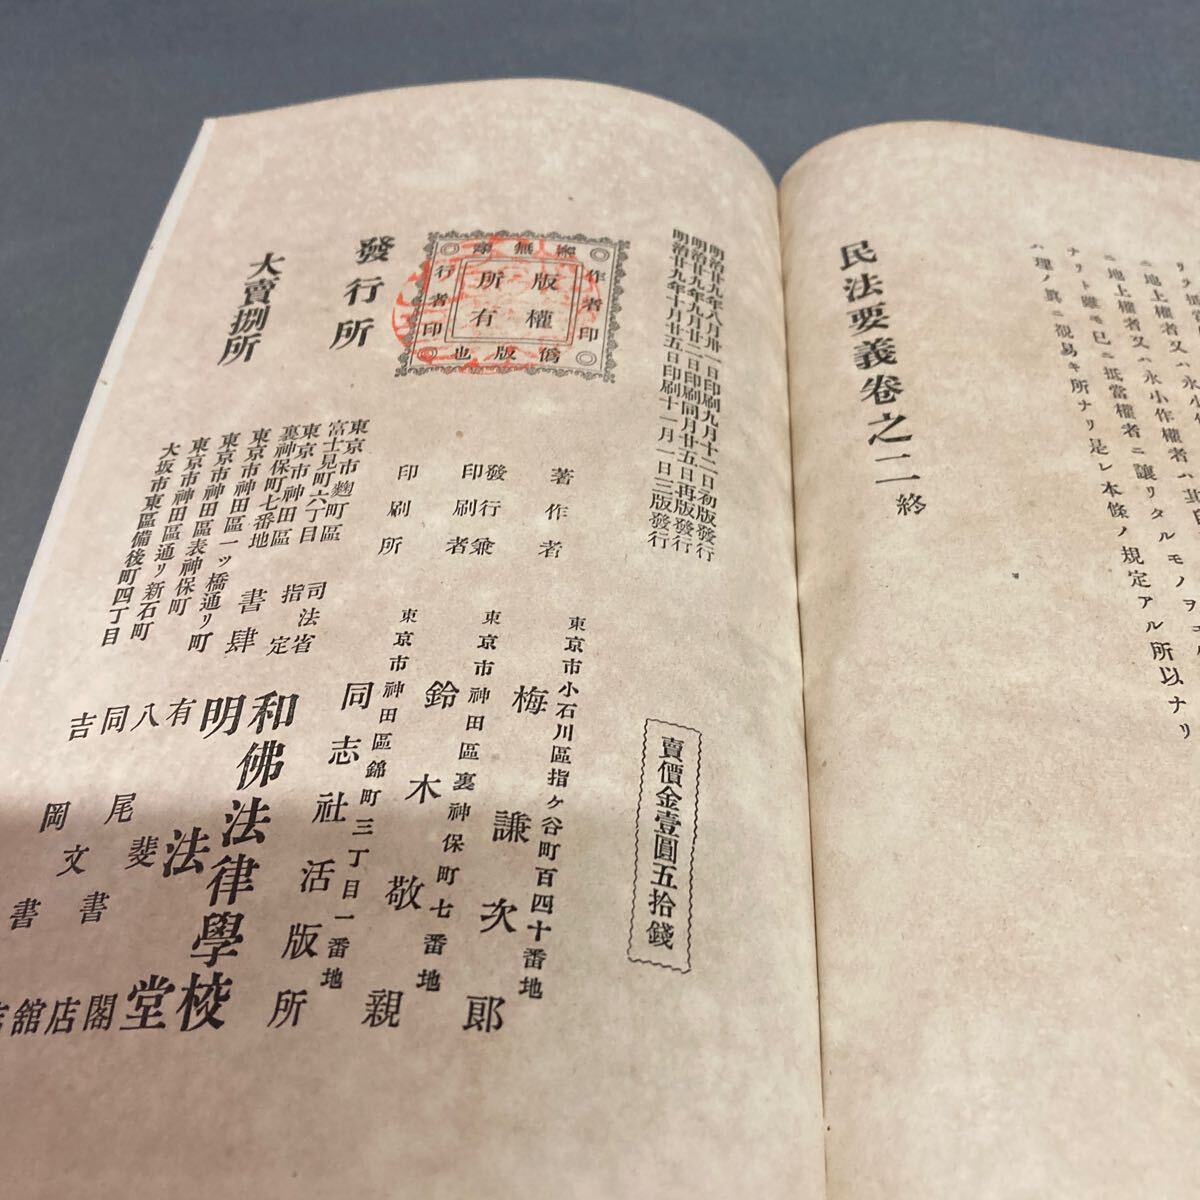 ニ地上權者又ハ永小作權者
ニ地上權者又ハ永小作權者ニ讓リタルモノヲ
ナリト雖モ已ニ抵當權者
ハ理ノ眞ニ覩易キ所ナリ是レ本條ノ規定アル所以ナリ
民法要義卷之二終
明治廿九年八月卅一日印刷九月十二日初版發行
明治廿九年九月廿二日印刷同月廿五日再版發行
明治廿九年十月廿五日印刷十一月一日三版發行
賣價金壹圓五拾錢
版權所有
作者印
行者印
僞版也
著作者
東京市小石川區指ケ谷町百四十番地
梅謙次郎
發行兼印刷者
東京市神田區裏神保町七番地
鈴木敬親
印刷所
東京市神田區錦町三丁目一番地
同志社活版所
發行所
東京市麴町區富士見町六丁目
司法省指定
和佛法律學校
東京市神田區裏神保町七番地
書肆
明法堂
大賣捌所
東京市神田區一ツ橋通リ町
有斐閣
東京市神田區表神保町
八尾書店
東京市神田區通リ新石町
同文館
大坂市東區備後町四丁目
吉岡書店